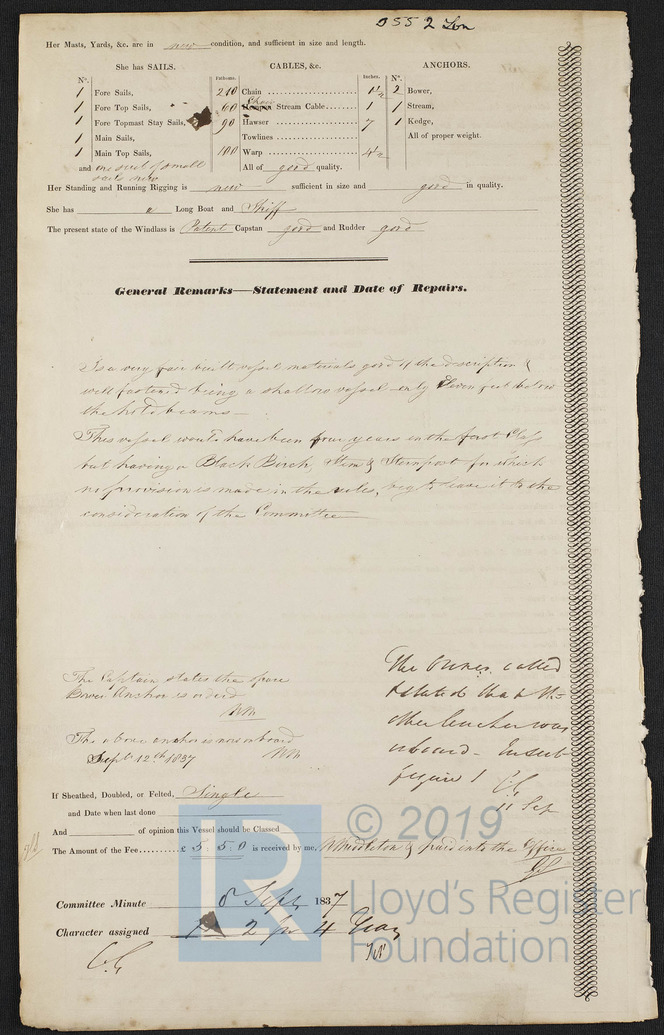 955 2 Lon
Her Masts, Yards, &c. are in new condition, and sufficient in size and length.
She has SAILS. CABLES, &c. ANCHORS.
Nº. Fathoms. Inches. Nº.
1 Fore Sails, 210 Chain 1½ 2 Bower,
1 Fore Top Sails, 60 Hempen Chain Stream Cable 1 1 Stream,
1 Fore Topmast Stay Sails, 90 Hawser 7 1 Kedge,
1 Main Sails, Towlines All of proper weight.
1 Main Top Sails, 100 Warp 4½
and one suit of small sails new All of good quality.
Her Standing and Running Rigging is new sufficient in size and good in quality.
She has a Long Boat and Skiff
The present state of the Windlass is Patent Capstan good and Rudder good
General Remarks—Statement and Date of Repairs.
Is a very fair built vessel materials good of the description &
well fastened being a shallow vessel only Eleven feet below
the hold beams—
This vessel would have been four years in the first Class
but having a Black Birch, Stem & Sternpost for which
no provision is made in the rules, beg to leave it to the
consideration of the Committee
The Captain states the spare
Bower Anchor is ordered
WM
The above anchor is now on board
Septr 12th 1837 WM
The Owner called
& stated that the
other Anchor was
onboard - Insert
figure 1 C.G
11 Sep
If Sheathed, Doubled, or Felted, Single
and Date when last done
And of opinion this Vessel should be Classed
The Amount of the Fee £ 5. 5. 0 is received by me, W Middleton & paid into the Office
Committee Minute 8 Septr 1837
Character assigned 2 for 4 Years
C.G
© 2019
LR
Lloyd's Register
Foundation